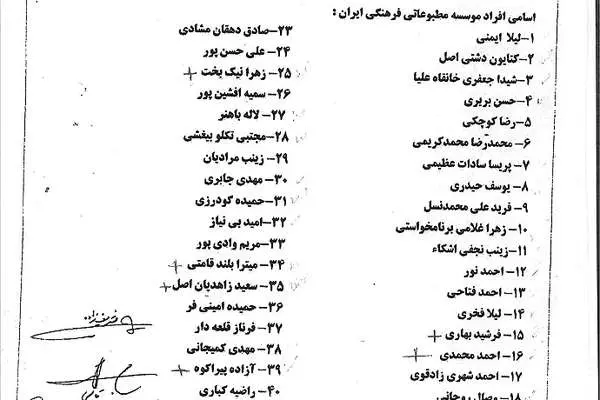 اسامی افراد موسسه مطبوعاتی فرهنگی ایران :
۱- لیلا ایمنی
۲- کتایون دشتی اصل
۳- شیدا جعفری خانقاه علیا
۴- حسن بربری
۵- رضا کوچکی
۶- محمدرضا محمدکریمی
۷- پریسا سادات عظیمی
۸- یوسف حیدری
۹- فرید علی محمدنسل
۱۰- زهرا غلامی برنامخواستی
۱۱- زینب نجفی اشکاء
۱۲- احمد نور
۱۳- احمد فتاحی
۱۴- لیلا فخری
۱۵- فرشید بهاری +
۱۶- احمد محمدی +
۱۷- احمد شهری زادقوی
۱۸- وصال روحانی
۲۳- صادق دهقان مشادی
۲۴- علی حسن پور
۲۵- زهرا نیک بخت +
۲۶- سمیه افشین پور
۲۷- لاله باهنر
۲۸- مجتبی تکلو بیغشی
۲۹- زینب مرادیان
۳۰- مهدی جابری
۳۱- حمیده گودرزی
۳۲- امید بی نیاز
۳۳- مریم وادی پور
۳۴- میترا بلند قامتی +
۳۵- سعید زاهدیان اصل +
۳۶- حمیده امینی فر
۳۷- فرناز قلعه دار
۳۸- مهدی کمیجانی
۳۹- آزاده پیراکوه +
۴۰- راضیه کباری